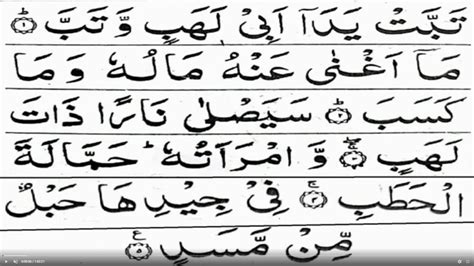 تَبَّتْ يَدَآ اَبِيْ لَهَبٍ وَّ تَبَّ ۝١ؕ
مَآ اَغْنٰى عَنْهُ مَالُهٗ وَ مَا
كَسَبَ ۝٢ؕ سَيَصْلٰى نَارًا ذَاتَ
لَهَبٍ ۝٣ۚ وَّ امْرَاَتُهٗ ؕ حَمَّالَةَ
الْحَطَبِ ۝٤ۚ فِيْ جِيْدِهَا حَبْلٌ
مِّنْ مَّسَدٍ ۝٥ع